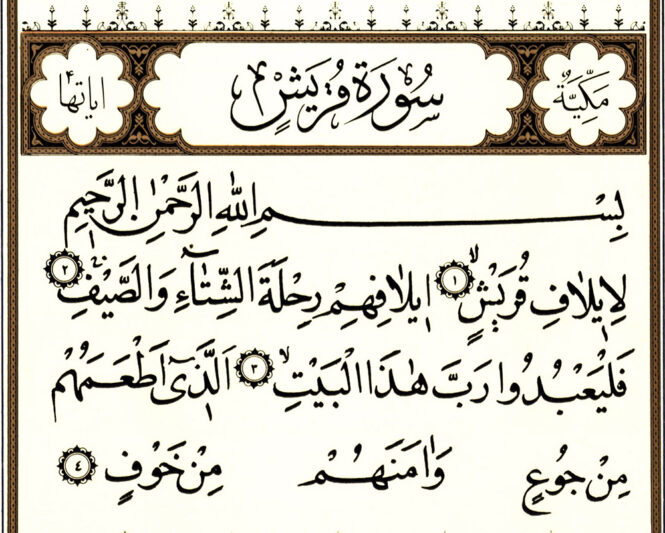 مَكِّيَّةٌ
سُورَةُ قُرَيْشٍ
اياتها ٤
بِسْمِ اللّٰهِ الرَّحْمٰنِ الرَّحٖيمِ
لِاٖيلَافِ قُرَيْشٍۙ ١ اٖيلَافِهِمْ رِحْلَةَ الشِّتَٓاءِ وَالصَّيْفِۚ ٢
فَلْيَعْبُدُوا رَبَّ هٰذَا الْبَيْتِۙ ٣ اَلَّذٖٓى اَطْعَمَهُمْ
مِنْ جُوعٍ وَاٰمَنَهُمْ مِنْ خَوْفٍ ٤